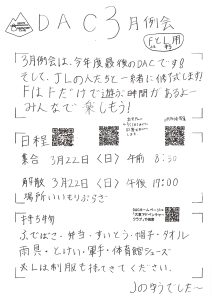 DAC3月例会
FとL用
3月例会は、今年度最後のDACです!!
そして、JLの人たちと一緒に修了式します!
FはFだけで遊ぶ時間があるよ〜
みんなで楽しもう!
日程
集合 3月22日(日) 午前 8:50
解散 3月22日(日) 午後 17:00
場所 いいもりぷらざ
DACホームページ→
持ち物
ふでばこ・弁当・すいとう・帽子・タオル
雨具・とけい・軍手・体育館シューズ
※Lは制服も持ってきてください。
JLのゆうでした〜